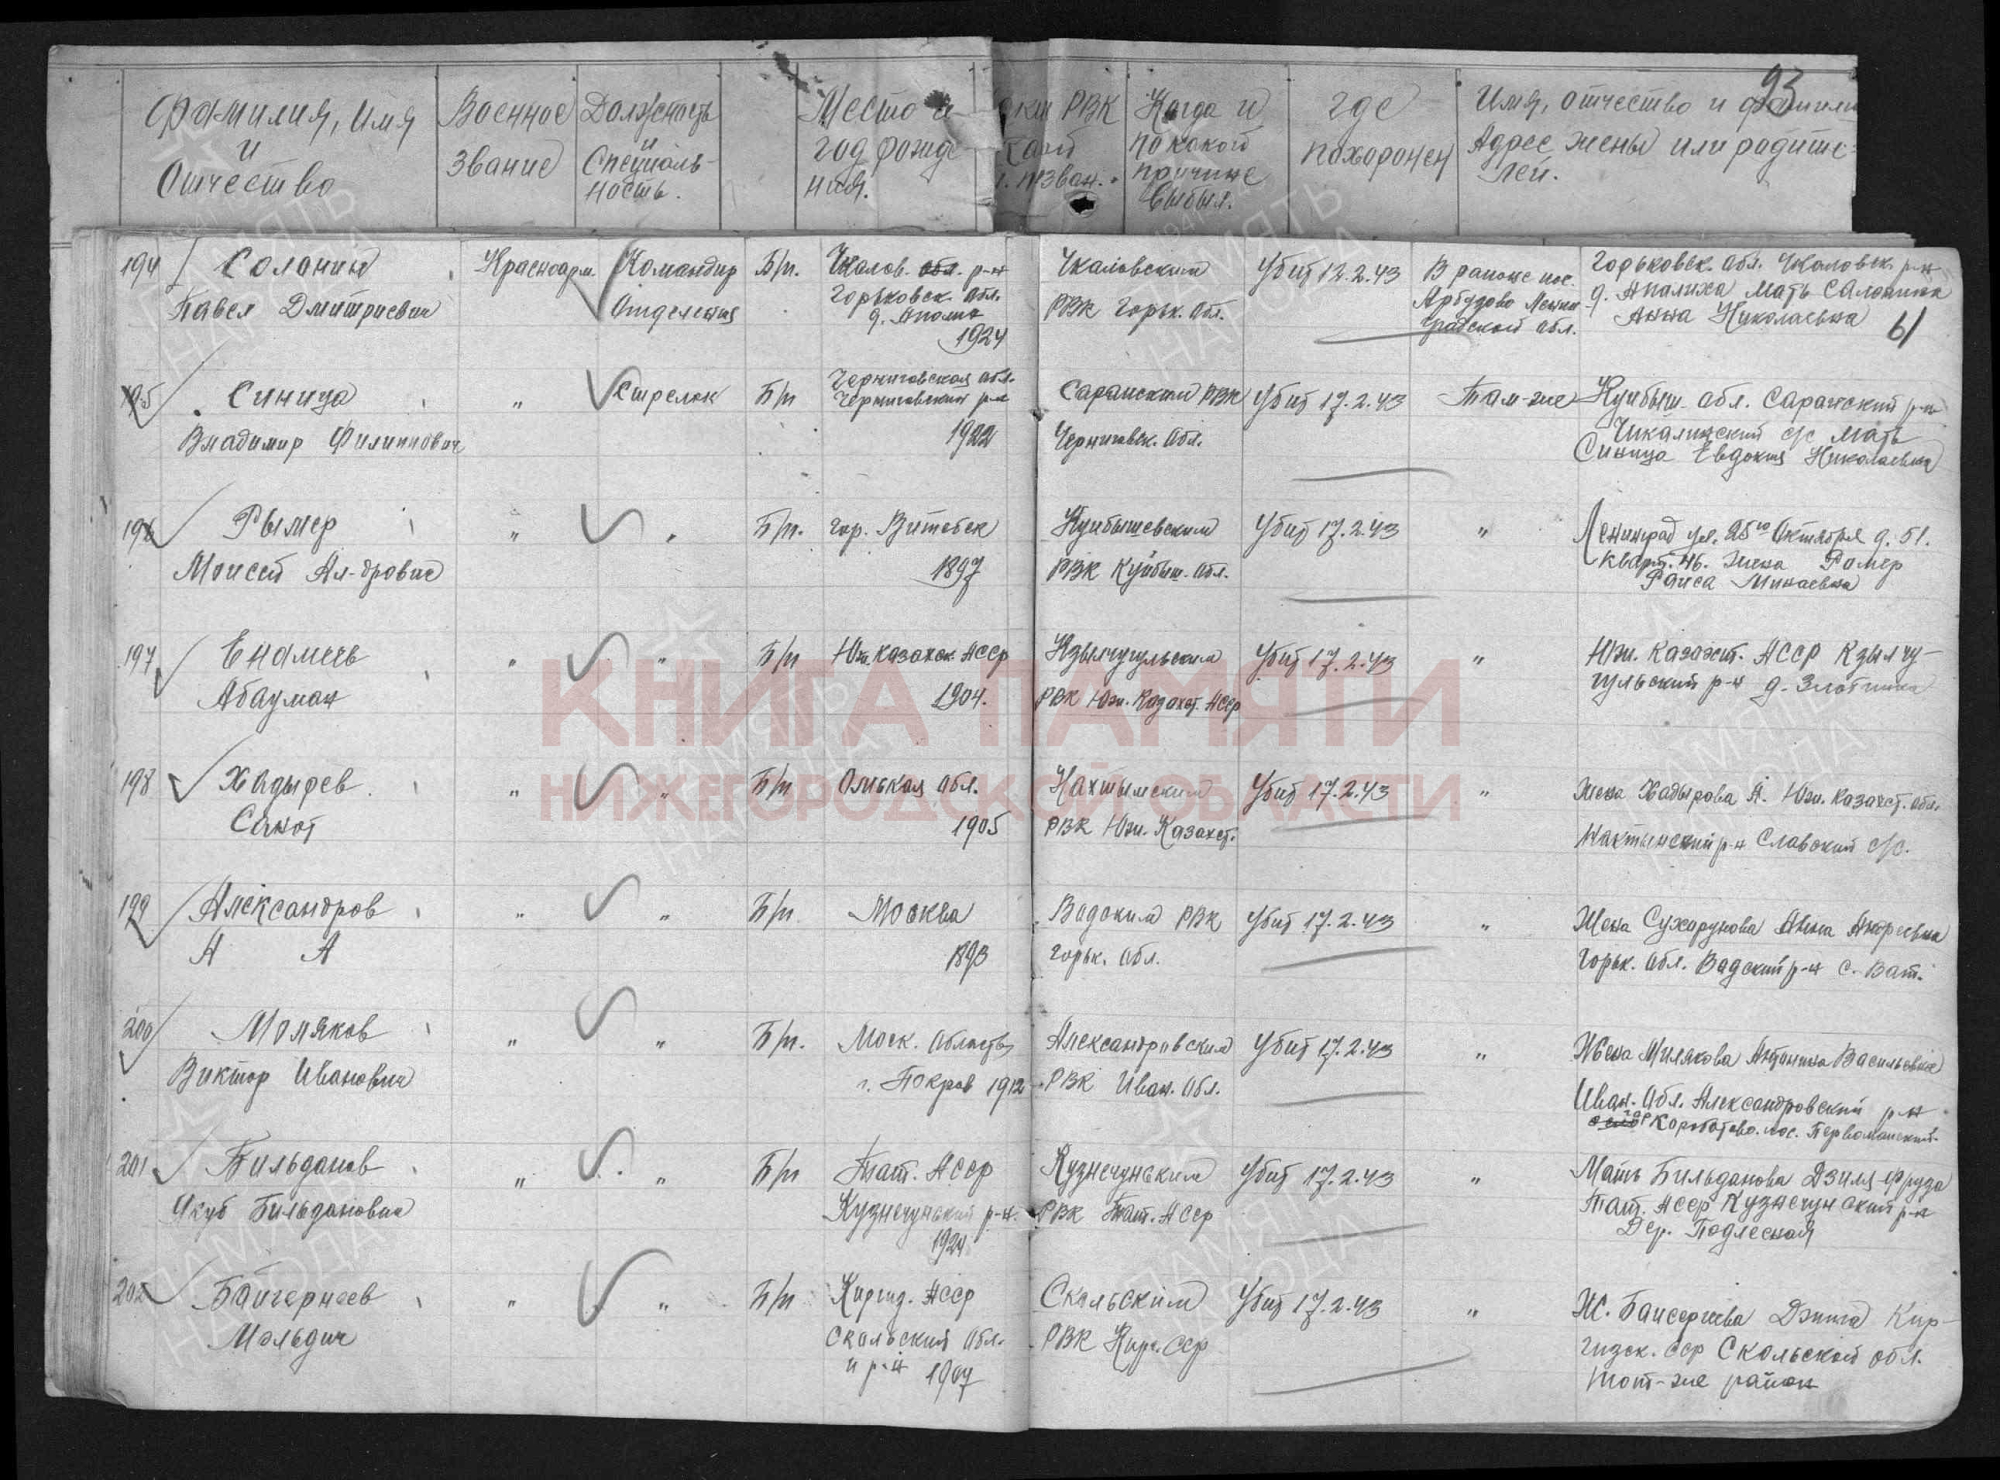 93
Фамилия, Имя
и
Отчество
Военное
звание
Должность
и
Специаль-
ность.
Место и
год рожде-
ния.
РВК
призван.
Когда и
по какой
причине
выбыл.
где
похоронен
Имя, отчество и фамили
Адрес жены или родите-
лей.
194 Солонин Красноарм. Командир Б/п. Чкалов. обл. р-н Чкаловским Убит 12.2.43 В районе пос. Горьковск. обл. Чкаловск. р-н
Павел Дмитриевич Отделения Горьковск. обл. РВК Горьк. обл. Арбузово Ленин- д. Аполиха Мать Салонина
д. Аполих градской обл. Анна Николаевна
1924 61
195 Синица " Стрелок Б/п Черниговская обл. Сараиским РВК Убит 17.2.43 Там-же Куйбыш. обл. Сарайский р-н
Владимир Филиппович Черниговский р-н Черниговск. обл. Чикалинский с/с Мать
1922 Синица Евдокия Николаевна
196 Рымер " " Б/п. гор. Витебск Куйбышевским Убит 17.2.43 " Ленинград ул. 25го Октября д. 51.
Моисей Ал-дрович 1897 РВК Куйбыш. обл. кварт. 46. жена Ромер
Раиса Минаевна
197 Енамечь " " Б/п Юж. Казахск. АССР Кзылчугульским Убит 17.2.43 " Юж. Казахст. АССР Кзылчу-
Абауман 1904. РВК Юж. Казахст. АССР гульский р-н д.
198 Хадырев " " Б/п Омькая обл. Нахтымским Убит 17.2.43 " Жена Хадырова А. Юж. Казахст. обл.
Санот 1905 РВК Юж. Казахст. Нактынский р-н Славский с/с.
199 Александров " " Б/п Москва Вадским РВК Убит 17.2.43 " Жена Сухарунова Анна Андреевна
А А 1893 Горьк. обл. Горьк. обл. Вадский р-н с. Ват.
200 Моляков " " Б/п. Моск. область Александровским Убит 17.2.43 " Жена Милякова Антонина Васильевна
Виктор Иванович г. Покров 1912 РВК Иван. обл. Иван. обл. Александровский р-н
Коробатово. пос. Первомайский
201 Бильданов " " Б/п Тат. АССР Кузнечунським Убит 17.2.43 " Мать Бильданова Дзиля фруза
Якуб Бильданович Кузнечунский р-н. РВК Тат. АССР Тат. АССР Кузнечунский р-н
1924 Дер. Подлесная
202 Байгернеев " " Б/п Киргиз. АССР Скальским Убит 17.2.43 " Ж. Баисергеева Дэнига Кир-
Мольдич Скальский обл. РВК Кирг. ССР гизск. ССР Скальской обл.
и р-н 1907 тот-же район
КНИГА ПАМЯТИ
НИЖЕГОРОДСКОЙ ОБЛАСТИ
ПАМЯТЬ
НАРОДА